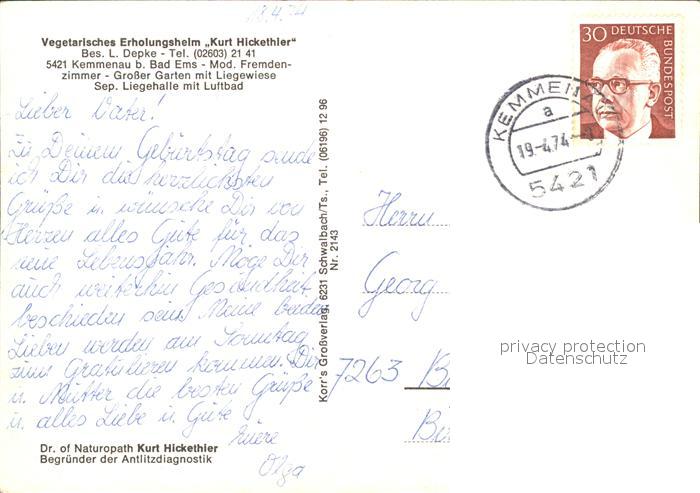 18.4.74
Vegetarisches Erholungsheim „Kurt Hickethier"
Bes. L. Depke - Tel. (02603) 21 41
5421 Kemmenau b. Bad Ems - Mod. Fremden-
zimmer - Großer Garten mit Liegewiese
Sep. Liegehalle mit Luftbad
Lieber Vater!
Zu Deinem Geburtstag sende
ich Dir die herzlichsten
Grüße u. wünsche Dir von
Herzen alles Gute für das
neue Lebensjahr. Möge Dir
auch weiterhin Gesundheit
beschieden sein. Meine beiden
Lieben werden am Sonntag
zum Gratulieren kommen. Dir
u. Mutter die besten Grüße
u. alles Liebe u. Gute
Eure
Olga
Dr. of Naturopath Kurt Hickethier
Begründer der Antlitzdiagnostik
Korr's Großverlag, 6231 Schwalbach/Ts., Tel. (06196) 12 96
Nr. 2143
30 DEUTSCHE
BUNDESPOST
KEMMENAU
a
19.-4.74
5421
Herrn
Georg
7263 B
privacy protection
Datenschutz